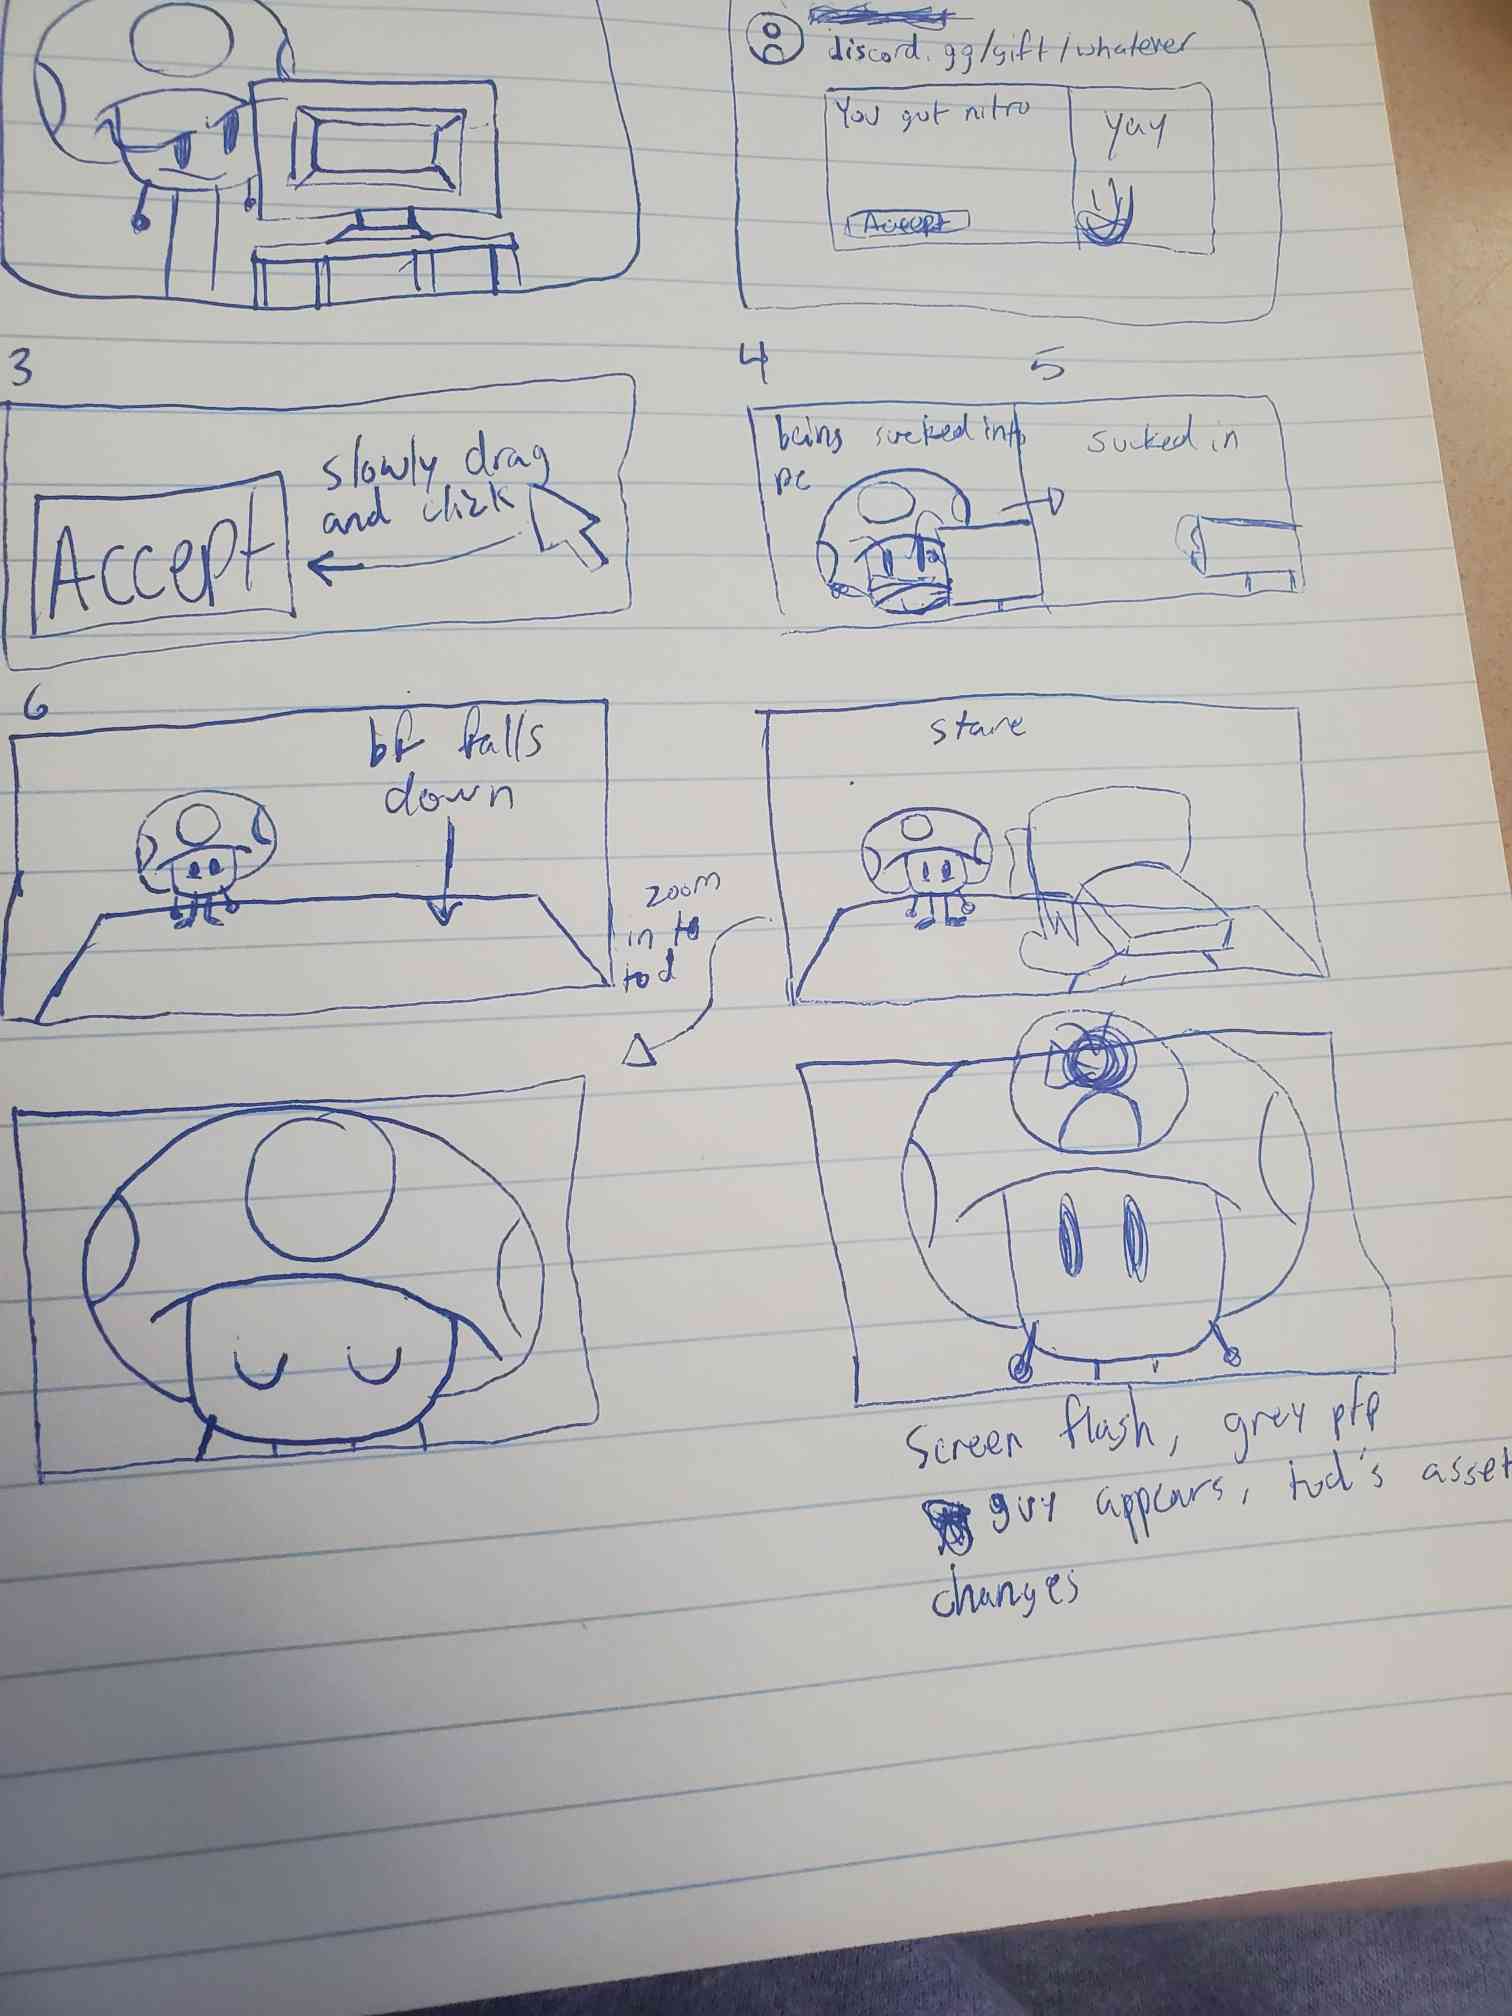 discord.gg/gift/whatever
You got nitro
yay
Accept
3
slowly drag
and click
Accept
4
5
being sucked into
pc
sucked in
6
bf falls
down
stare
zoom
in to
tod
Screen flash, grey pfp
guy appears, tod's asset
changes